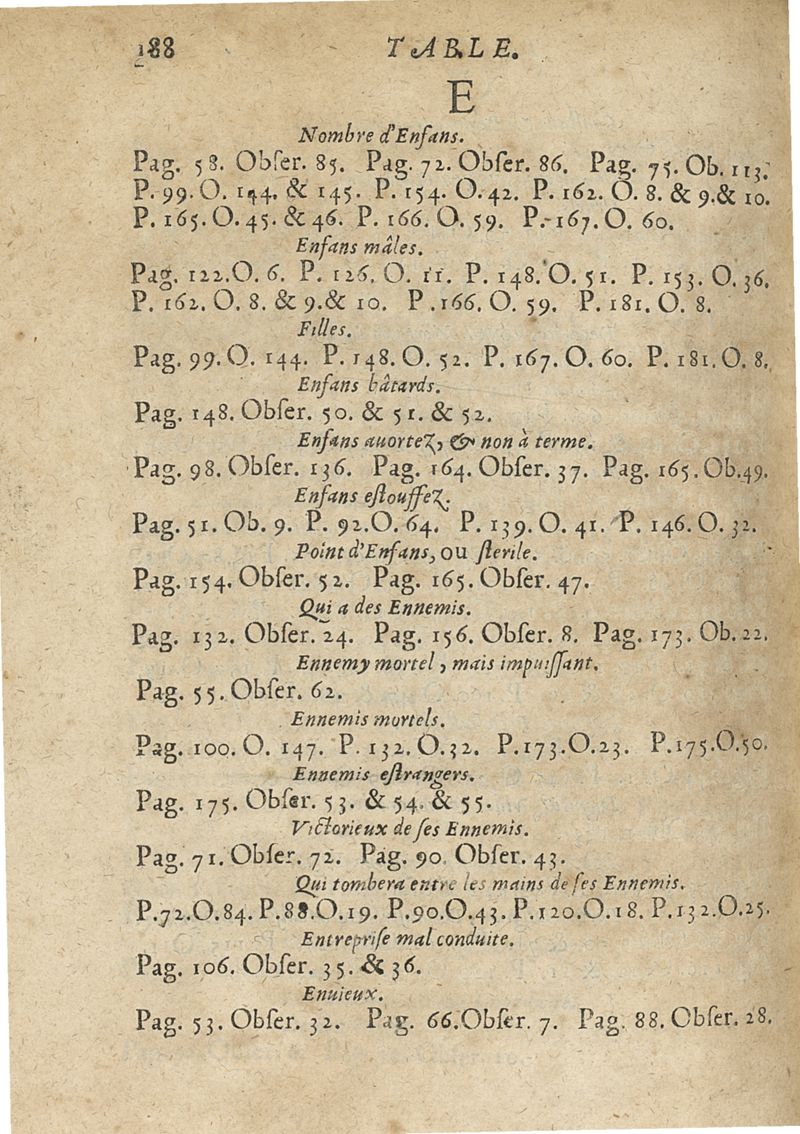 188 TABLE.
E
Nombre d'Enfans.
Pag. 58. Obſer. 85. Pag. 72. Obſer. 86. Pag. 75. Ob. 113.
P. 99. O. 144. & 145. P. 154. O. 42. P. 162. O. 8. & 9. & 10.
P. 165. O. 45. & 46. P. 166. O. 59. P. 167. O. 60.
Enfans mâles.
Pag. 122. O. 6. P. 126. O. 11. P. 148. O. 51. P. 153. O. 36.
P. 162. O. 8. & 9. & 10. P. 166. O. 59. P. 181. O. 8.
Filles.
Pag. 99. O. 144. P. 148. O. 52. P. 167. O. 60. P. 181. O. 8.
Enfans bâtards.
Pag. 148. Obſer. 50. & 51. & 52.
Enfans auortez, & non à terme.
Pag. 98. Obſer. 136. Pag. 164. Obſer. 37. Pag. 165. Ob. 49.
Enfans eſtouffez.
Pag. 51. Ob. 9. P. 92. O. 64. P. 139. O. 41. P. 146. O. 32.
Point d'Enfans, ou ſterile.
Pag. 154. Obſer. 52. Pag. 165. Obſer. 47.
Qui a des Ennemis.
Pag. 132. Obſer. 24. Pag. 156. Obſer. 8. Pag. 173. Ob. 22.
Ennemy mortel, mais impuiſſant.
Pag. 55. Obſer. 62.
Ennemis mortels.
Pag. 100. O. 147. P. 132. O. 32. P. 173. O. 23. P. 175. O. 50.
Ennemis eſtrangers.
Pag. 175. Obſer. 53. & 54. & 55.
Victorieux de ſes Ennemis.
Pag. 71. Obſer. 72. Pag. 90. Obſer. 43.
Qui tombera entre les mains de ſes Ennemis.
P. 72. O. 84. P. 88. O. 19. P. 90. O. 43. P. 120. O. 18. P. 132. O. 25.
Entrepriſe mal conduite.
Pag. 106. Obſer. 35. & 36.
Enuieux.
Pag. 53. Obſer. 32. Pag. 66. Obſer. 7. Pag. 88. Obſer. 28.